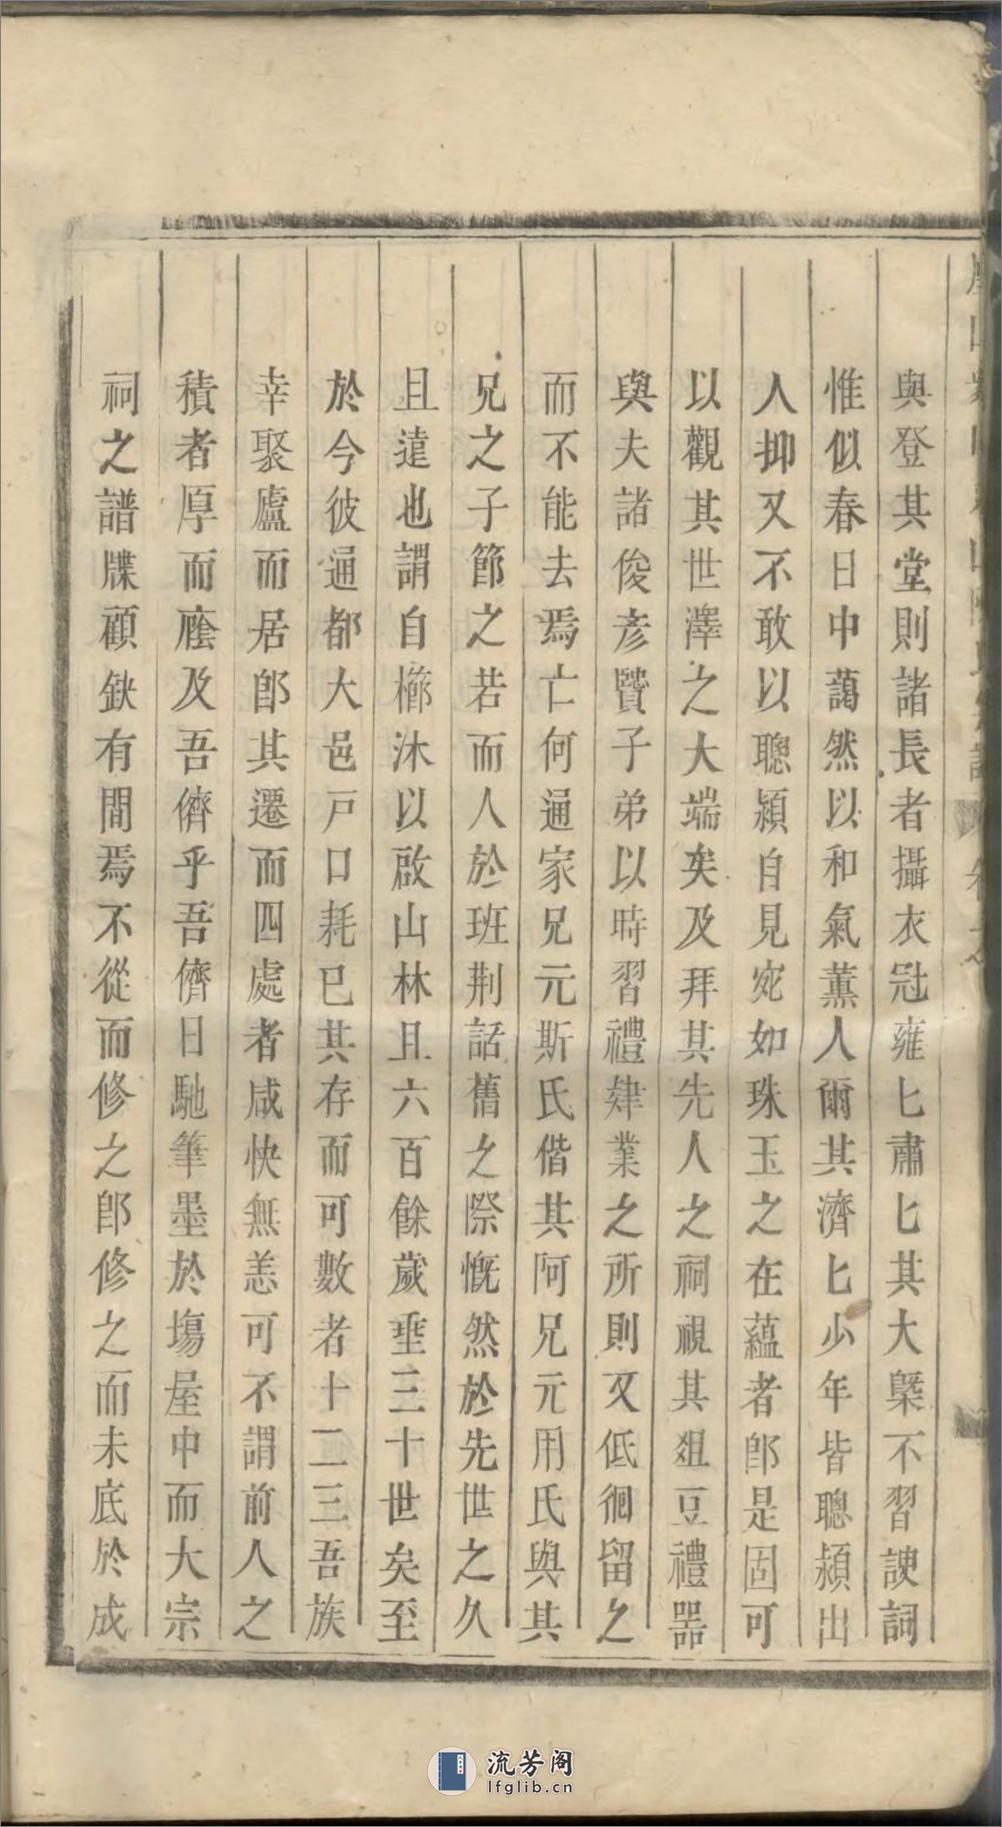 與登其堂則諸長者攝衣冠雍匕肅匕其大槩不習諛詞
惟似春日中藹然以和氣薰人爾其濟匕少年皆聰潁出
人抑又不敢以聰潁自見宛如珠玉之在蘊者郎是固可
以觀其世澤之大端矣及拜其先人之祠視其俎豆禮器
與夫諸俊彥賢子弟以時習禮肄業之所則又低徊留之
而不能去焉亡何通家兄元斯氏偕其阿兄元用氏與其
兄之子節之若而人於班荆話舊之際慨然於先世之久
且遠也謂自櫛沐以啟山林且六百餘歲垂三十世矣至
於今彼通都大邑戸口耗已其存而可數者十二三吾族
幸聚廬而居郎其遷而四處者咸快無恙可不謂前人之
積者厚而廕及吾儕乎吾儕日馳筆墨於塲屋中而大宗
祠之譜牒顧缺有間焉不從而修之郎修之而未底於成
流芳阁
lfglib.cn